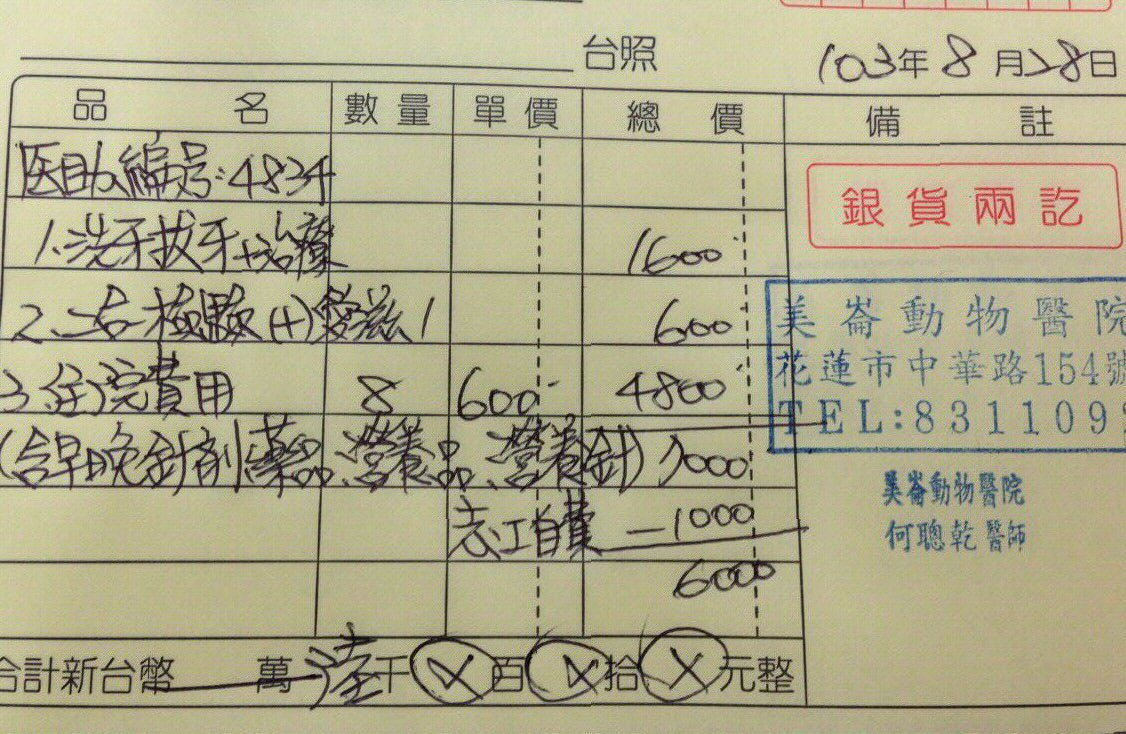 台照
103年8月28日
品名 數量 單價 總價 備註
医助編号:4834
1.洗牙拔牙+治療 1600
銀貨兩訖
2.二合一檢驗(+)愛滋1 600
美崙動物醫院
花蓮市中華路154號
TEL:8311092
3.住院費用 8 600 4800
(含早晚針劑藥品、營養品、營養針) 7000
志工自費 -1000
美崙動物醫院
何聰乾醫師
6000
合計新台幣 萬陸千X百X拾X元整